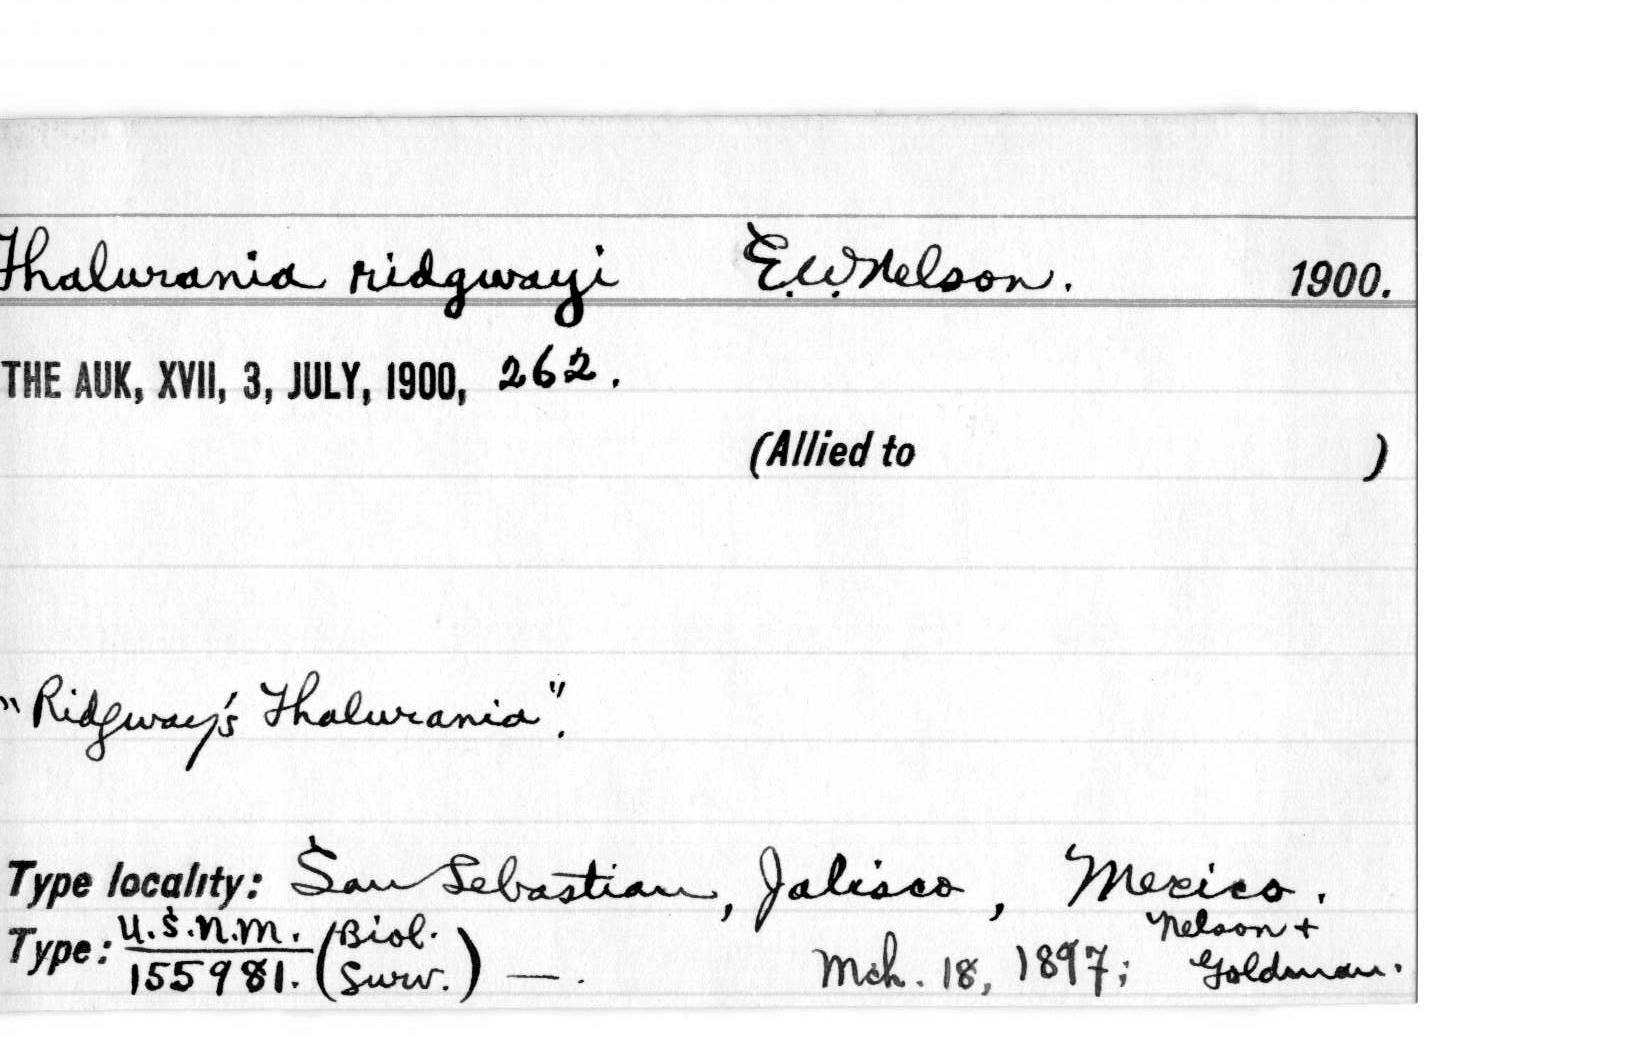 Thalurania ridgwayi E.W.Nelson. 1900.
THE AUK, XVII, 3, JULY, 1900, 262.
(Allied to )
"Ridgway's Thalurania".
Type locality: San Sebastian, Jalisco, Mexico.
Type: U.S.N.M. 155981. (Biol. Surv.) — . Mch. 18, 1897; Nelson + Goldman.